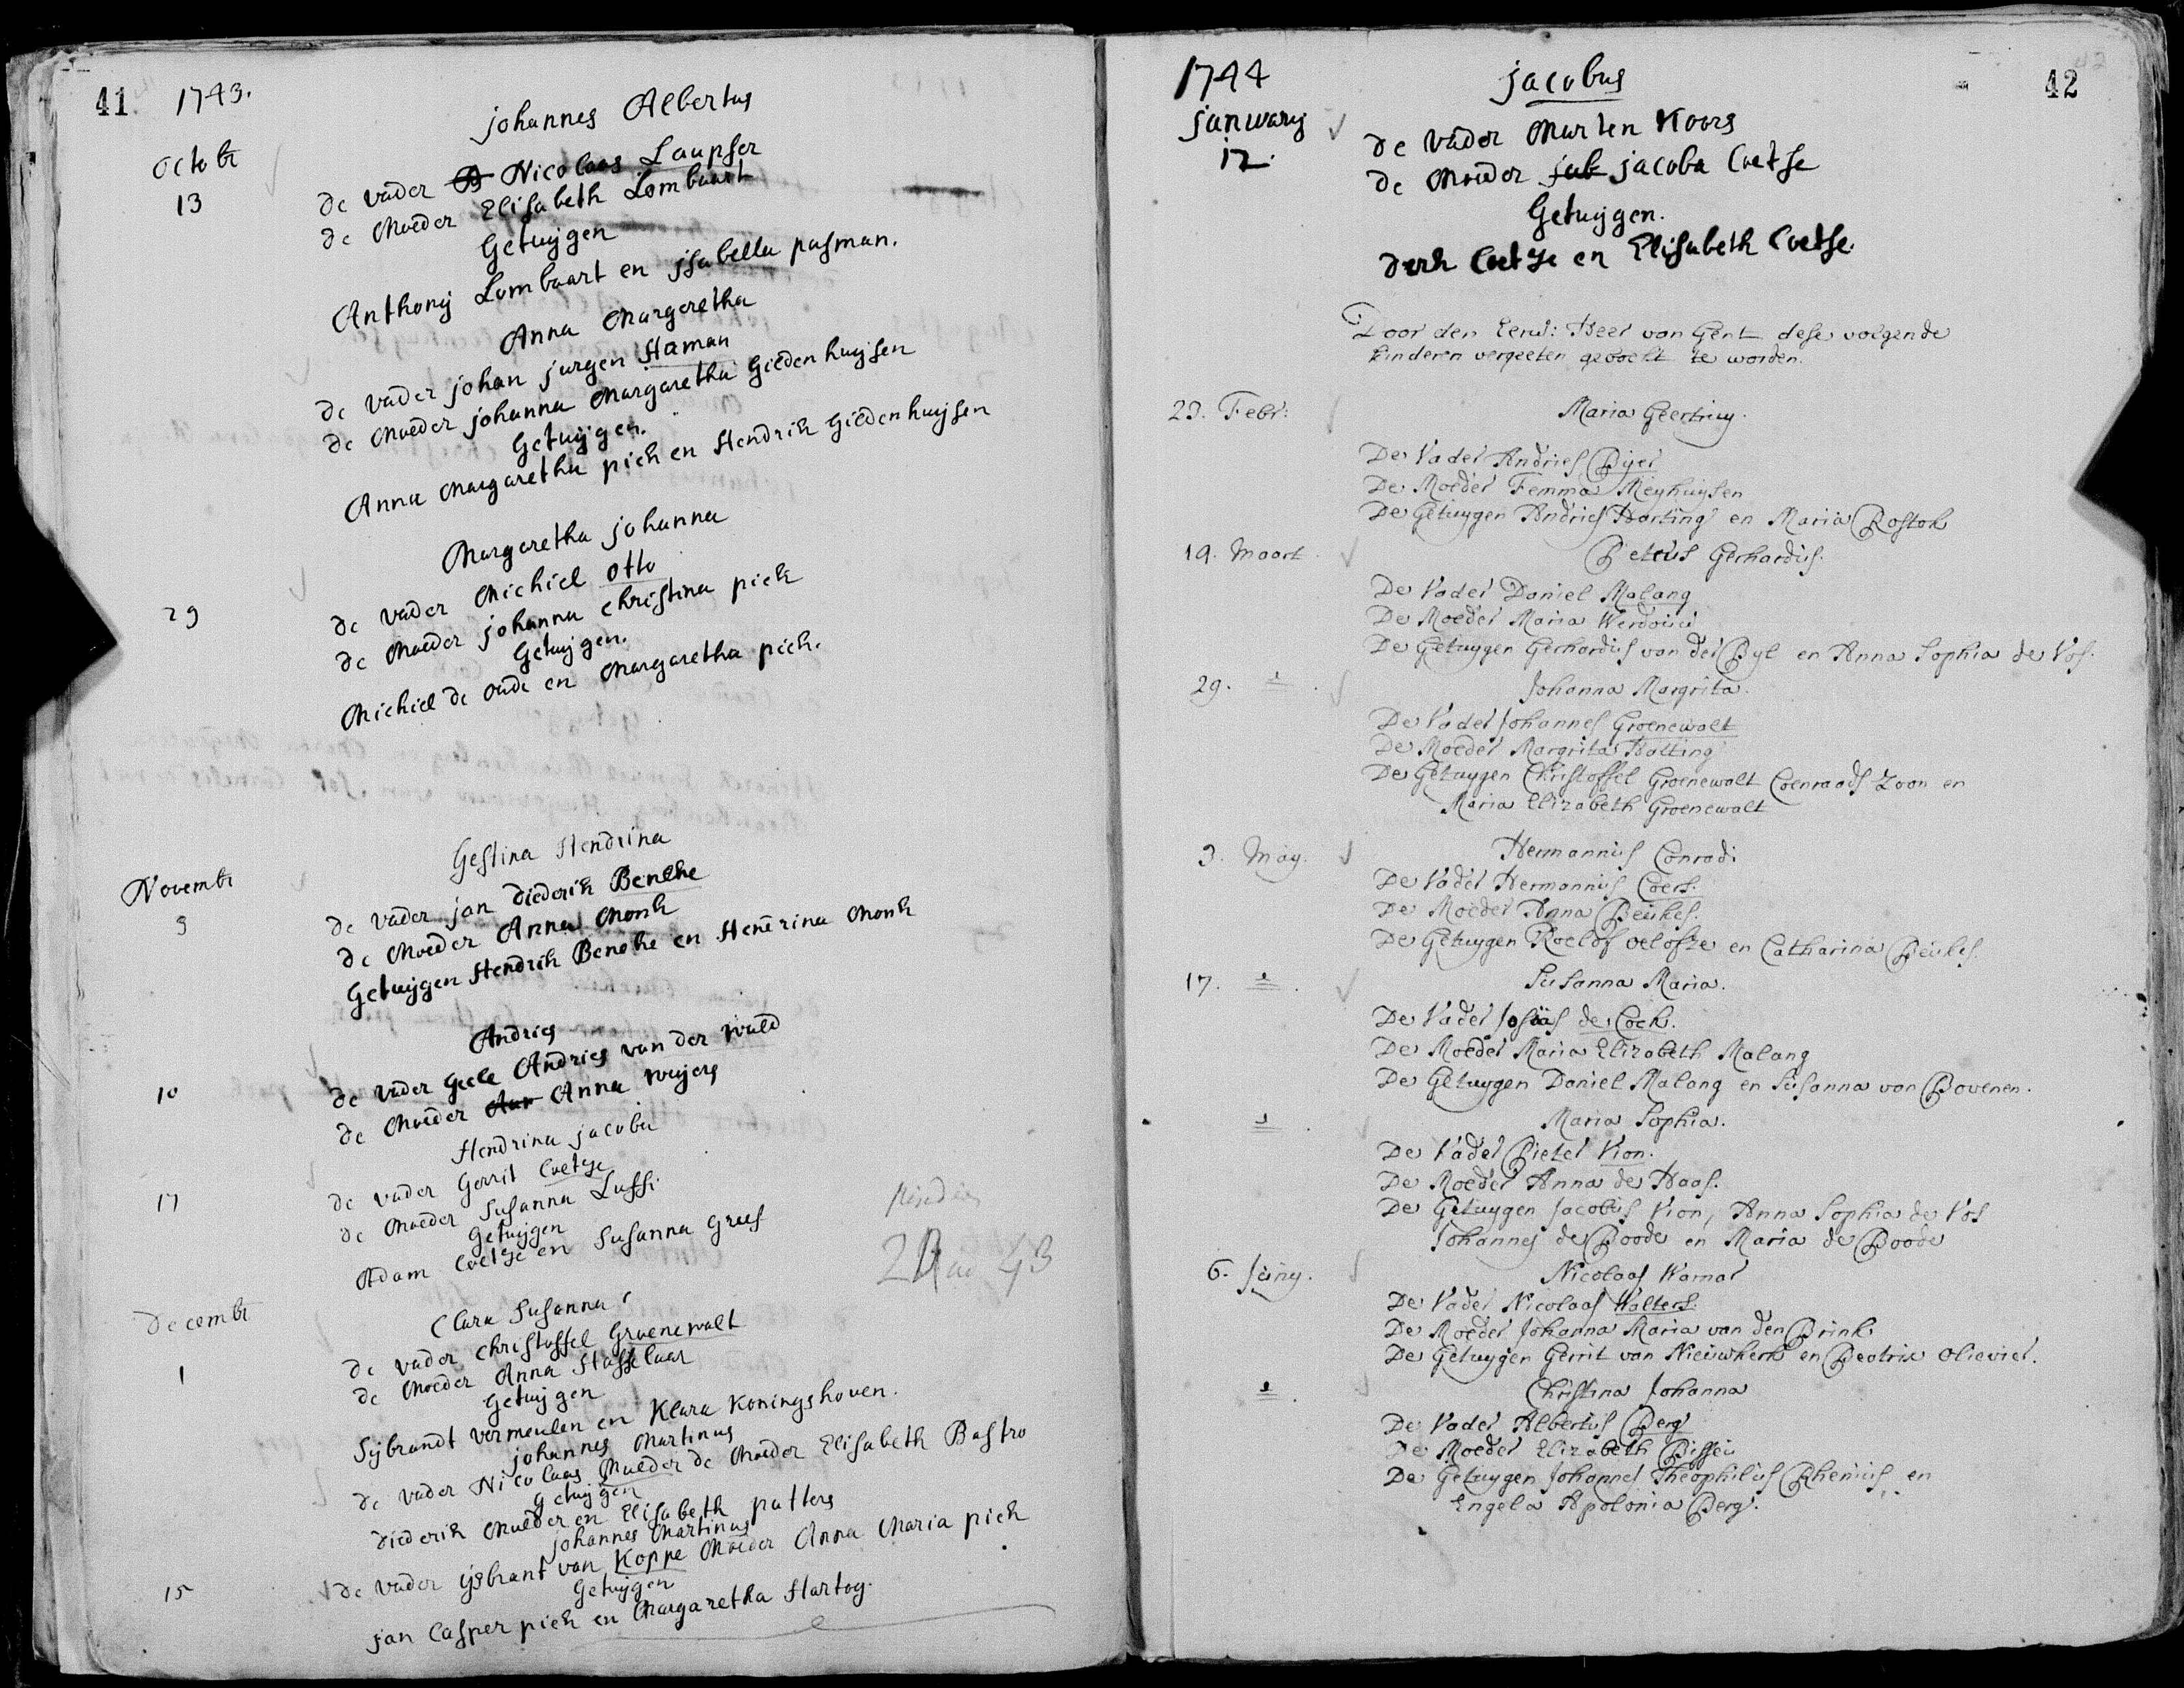 41 1743.
Johannes Albertus
Octobr
13
de vader Nicolaas Laupser
de Moeder Elisabeth Lombaart
Getuijgen
Anthonij Lombaart en jsabella pasman.
Anna Margaretha
de vader johan jurgen Haman
de Moeder johanna Margaretha Gildenhuijsen
Getuijgen.
Anna Margaretha pick en Hendrik Gildenhuijsen
Margaretha johanna
29
de vader Michiel Otto
de Moeder johanna Christina pick
Getuijgen.
Michiel de oude en Margaretha pick.
Gestina Hendrina
Novembr
3
de vader jan Diederik Benëke
de Moeder Anna Monk
Getuijgen Hendrik Beneke en Henrina Monk
Andries
10
de vader Andries van der wald
de Moeder Anna weijers
Hendrina jacoba
17
de vader Gerrit Coetze
de Moeder Susanna Luffi
Getuijgen
Adam Coetze en Susanna Greef
Clara Susanna
Decembr
1
de vader Christoffel Groenewalt
de Moeder Anna Hasselaar
Getuijgen
Sijbrandt vermeulen en Klara Koningshoven.
johannes Martinus
de vader Nicolaas Mulder de Moeder Elisabeth Bastro
Getuijgen
diederik Mulder en Elisabeth putters
johannes Martinus
15
de vader ijsbrant van Koppe Moeder Anna Maria pick
Getuijgen
jan Casper pick en Margaretha Hartog.
1744 42
jacobus
january
12.
de vader Marten Koors
de Moeder jacoba Coetse
Getuijgen.
derk Coetze en Elisabeth Coetse.
Door den Eerw: Heer van Gent dese volgende
kinderen vergeeten geboekt te worden.
23. Febr: Maria Geertruy.
De Vader Andries Byer
De Moeder Femma Meyhuysen
De Getuygen Andries Harting en Maria Rostok
19. Maart. Petrus Gerhardus.
De Vader Daniel Malang
De Moeder Maria Verdoüw
De Getuygen Gerhardus van der Byl en Anna Sophia de Vos.
29. Johanna Margrita.
De Vader Johannes Groenewalt
De Moeder Margrita Hatting
De Getuygen Christoffel Groenewalt Coenraads Zoon en
Maria Elizabeth Groenewalt
3. May. Hermannüs Conradi
De Vader Hermannüs Coers.
De Moeder Anna Beükes.
De Getuygen Roelof oelofze en Catharina Beükes.
17. Süsanna Maria.
De Vader Josüas de Cock.
De Moeder Maria Elizabeth Malang
De Getuygen Daniel Malang en Süsanna van Bovenen.
Maria Sophia.
De Vader Pieter Vion.
De Moeder Anna de Haas.
De Getuygen Jacobus Vion, Anna Sophia de Vos
Johannes de Boode en Maria de Boode
6. Juny. Nicolaas Warnar
De Vader Nicolaas Walters.
De Moeder Johanna Maria van den Brink
De Getuygen Gerrit van Nieuwkerk en Beatrix olievier.
Christina Johanna
De Vader Albertus Berg
De Moeder Elizabeth Bisseü
De Getuygen Johannes Theophilus Rhenius en
Engela Apolonia Berg.